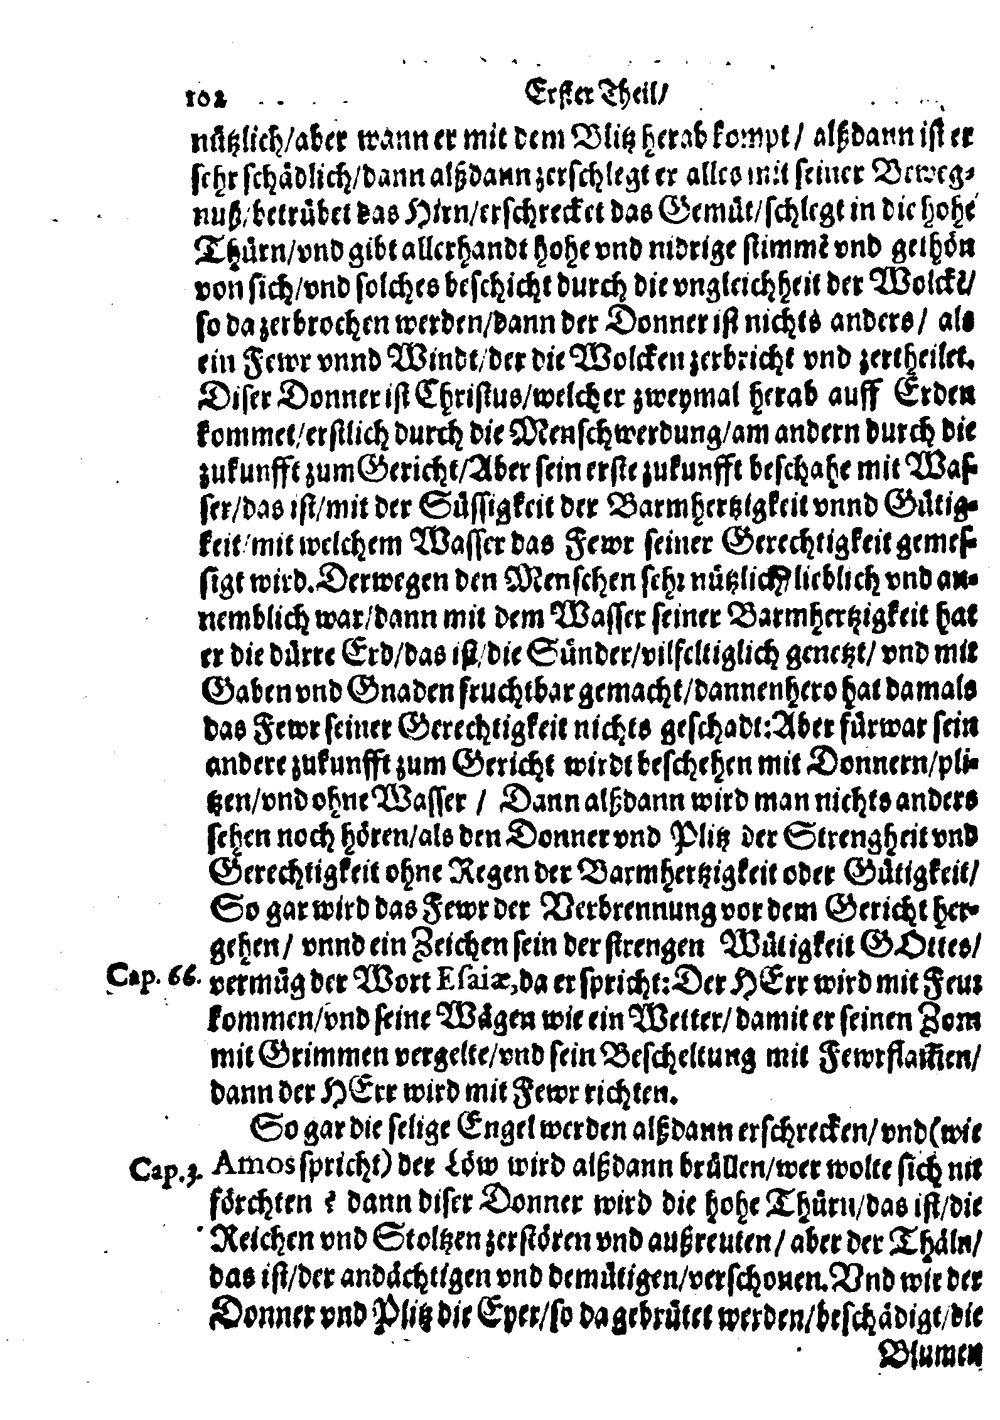 102 Erster Theil/
nützlich/aber wann er mit dem Blitz herab kompt/ alßdann ist er
sehr schädlich/dann alßdann zerschlegt er alles mit seiner Beweg-
nuß/betrübet das Hirn/erschrecket das Gemüt/schlegt in die hohe
Thürn/vnd gibt allerhandt hohe vnd nidrige stimmē vnd gethön
von sich/vnd solches beschicht durch die vngleichheit der Wolckē/
so da zerbrochen werden/dann der Donner ist nichts anders/ als
ein Fewr vnnd Windt/der die Wolcken zerbricht vnd zertheilet.
Diser Donner ist Christus/welcher zweymal herab auff Erden
kommet/erstlich durch die Menschwerdung/am andern durch die
zukunfft zum Gericht/Aber sein erste zukunfft beschahe mit Was-
ser/das ist/mit der Süssigkeit der Barmhertzigkeit vnnd Gütig-
keit/mit welchem Wasser das Fewr seiner Gerechtigkeit gemes-
sigt wird. Derwegen den Menschen sehr nützlich/lieblich vnd an-
nemblich war/dann mit dem Wasser seiner Barmhertzigkeit hat
er die dürre Erd/das ist/die Sünder/vilfeltiglich genetzt/ vnd mit
Gaben vnd Gnaden fruchtbar gemacht/dannenhero hat damals
das Fewr seiner Gerechtigkeit nichts geschadt: Aber fürwar sein
andere zukunfft zum Gericht wirdt beschehen mit Donnern/pli-
tzen/vnd ohne Wasser / Dann alßdann wird man nichts anders
sehen noch hören/als den Donner vnd Plitz der Strengheit vnd
Gerechtigkeit ohne Regen der Barmhertzigkeit oder Gütigkeit/
So gar wird das Fewr der Verbrennung vor dem Gericht her-
gehen/ vnnd ein Zeichen sein der strengen Wütigkeit GOttes/
Cap. 66. vermüg der Wort Esaiæ, da er spricht: Der HErr wird mit Feur
kommen/vnd seine Wägen wie ein Wetter/damit er seinen Zorn
mit Grimmen vergelte/vnd sein Bescheltung mit Fewrflam̃en/
dann der HErr wird mit Fewr richten.
So gar die selige Engel werden alßdann erschrecken/vnd (wie
Cap. 3. Amos spricht) der Löw wird alßdann brüllen/wer wolte sich nit
förchten? dann diser Donner wird die hohe Thürn/das ist/die
Reichen vnd Stoltzen zerstören vnd außreuten/ aber der Thäln/
das ist/der andächtigen vnd demütigen/verschonen. Vnd wir der
Donner vnd Plitz die Eyer/so da gebrütet werden/beschädigt/die
Blumen